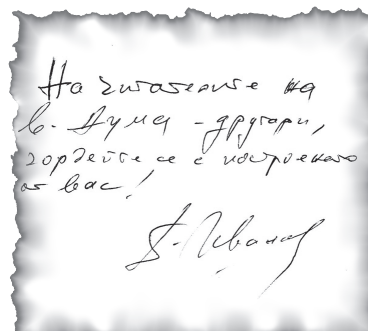 На читателите на
в. Дума - другари,
гордейте се с построеното
от вас!
Иванов